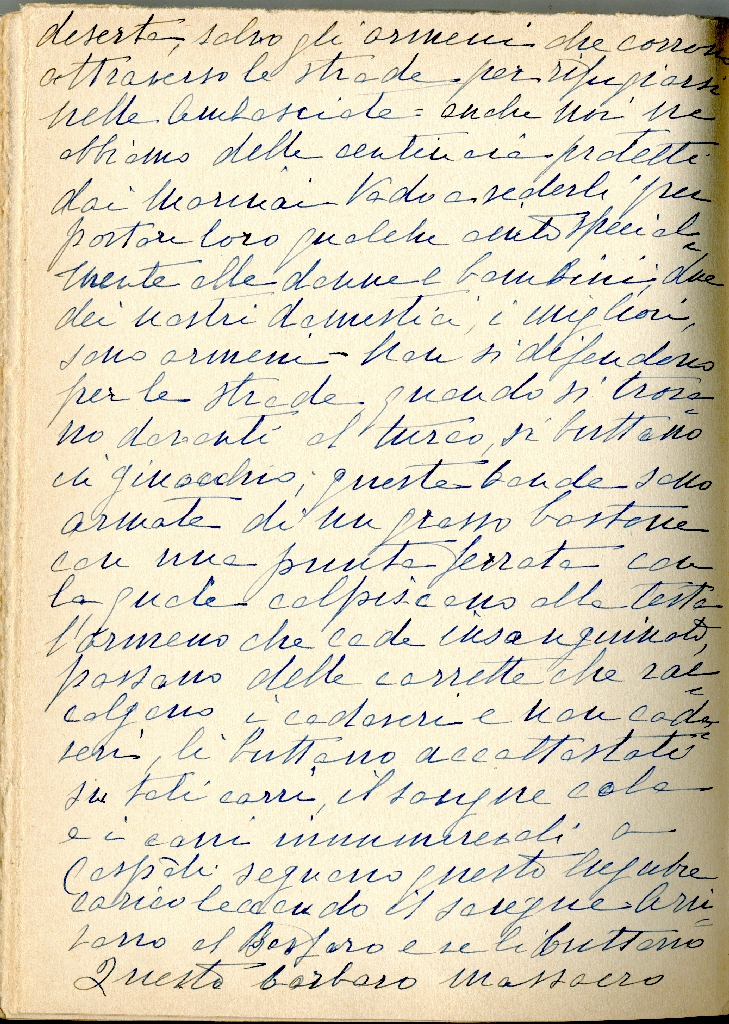 deserta, salvo gli armeni che corrono
attraverso le strade per rifugiarsi
nelle Ambasciate = anche noi ne
abbiamo delle centinaia protetti
dai Marinai Vado a vederli per
portare loro qualche aiuto special=
mente alle donne e bambini; due
dei nostri domestici, i migliori,
sono armeni - Non si difendono
per le strade quando si trova=
no davanti al turco, si buttano
in ginocchio; queste bande sono
armate di un grosso bastone
con una punta ferrata con
la quale colpiscono alla testa
l'armeno che cade insanguinato,
passano delle carrette che rac=
colgono i cadaveri e non cada=
veri, li buttano accattastati
su tali carri, il sangue cola
e i cani innumerevoli a
Cospoli seguono questo lugubre
carico leccando il sangue Arri=
vano al Bosforo e ve li buttano
Questo barbaro massacro